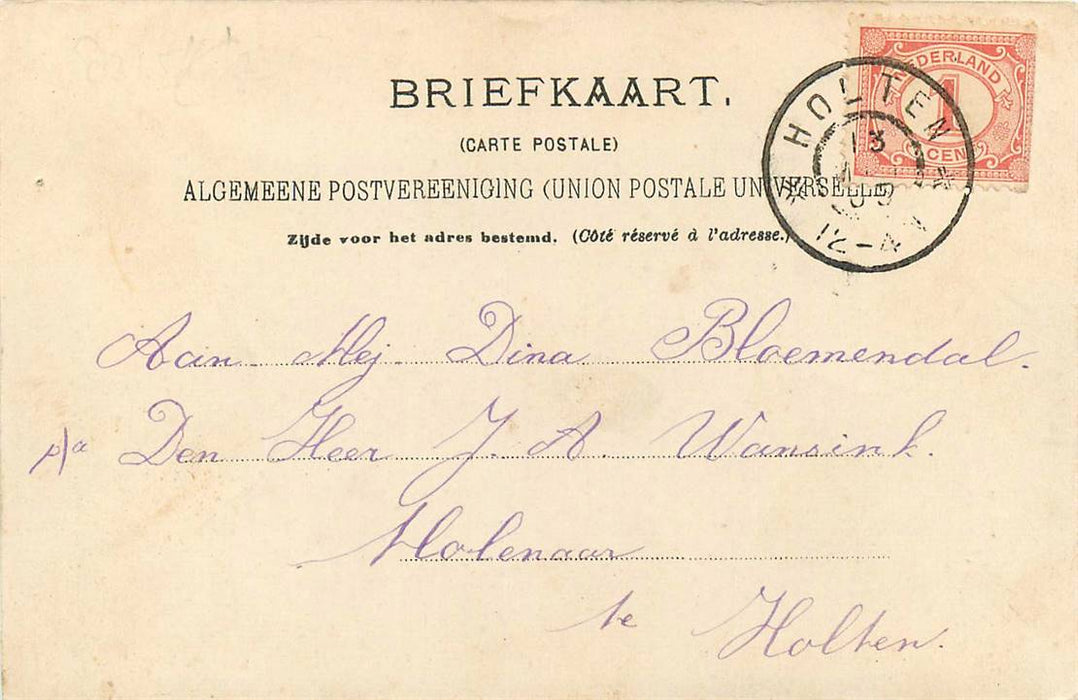 BRIEFKAART.
(CARTE POSTALE)
ALGEMEENE POSTVEREENIGING (UNION POSTALE UNIVERSELLE)
Zijde voor het adres bestemd. (Côté réservé à l'adresse.)
NEDERLAND
1
CENT
HOLTEN
13
12-4N
Aan Mej. Dina Bloemendal.
p/a Den Heer J. A. Wansink.
Molenaar
te Holten.